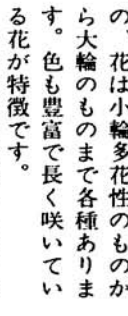 の、花は小輪多花性のものか
ら大輪のものまで各種ありま
す。色も豊富で長く咲いてい
る花が特徴です。